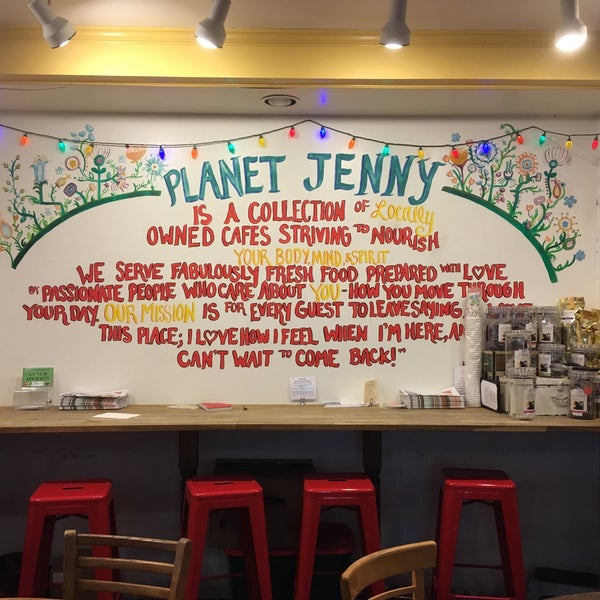 PLANET JENNY
IS A COLLECTION OF Locally
OWNED CAFES STRIVING TO NOURISH
YOUR BODY, MIND, & SPIRIT
WE SERVE FABULOUSLY FRESH FOOD PREPARED WITH LOVE
BY PASSIONATE PEOPLE WHO CARE ABOUT YOU - HOW YOU MOVE THROUGH
YOUR DAY. OUR MISSION IS FOR EVERY GUEST TO LEAVE SAYING,
THIS PLACE; I LOVE HOW I FEEL WHEN I'M HERE,
CAN'T WAIT TO COME BACK!"
LUNCH